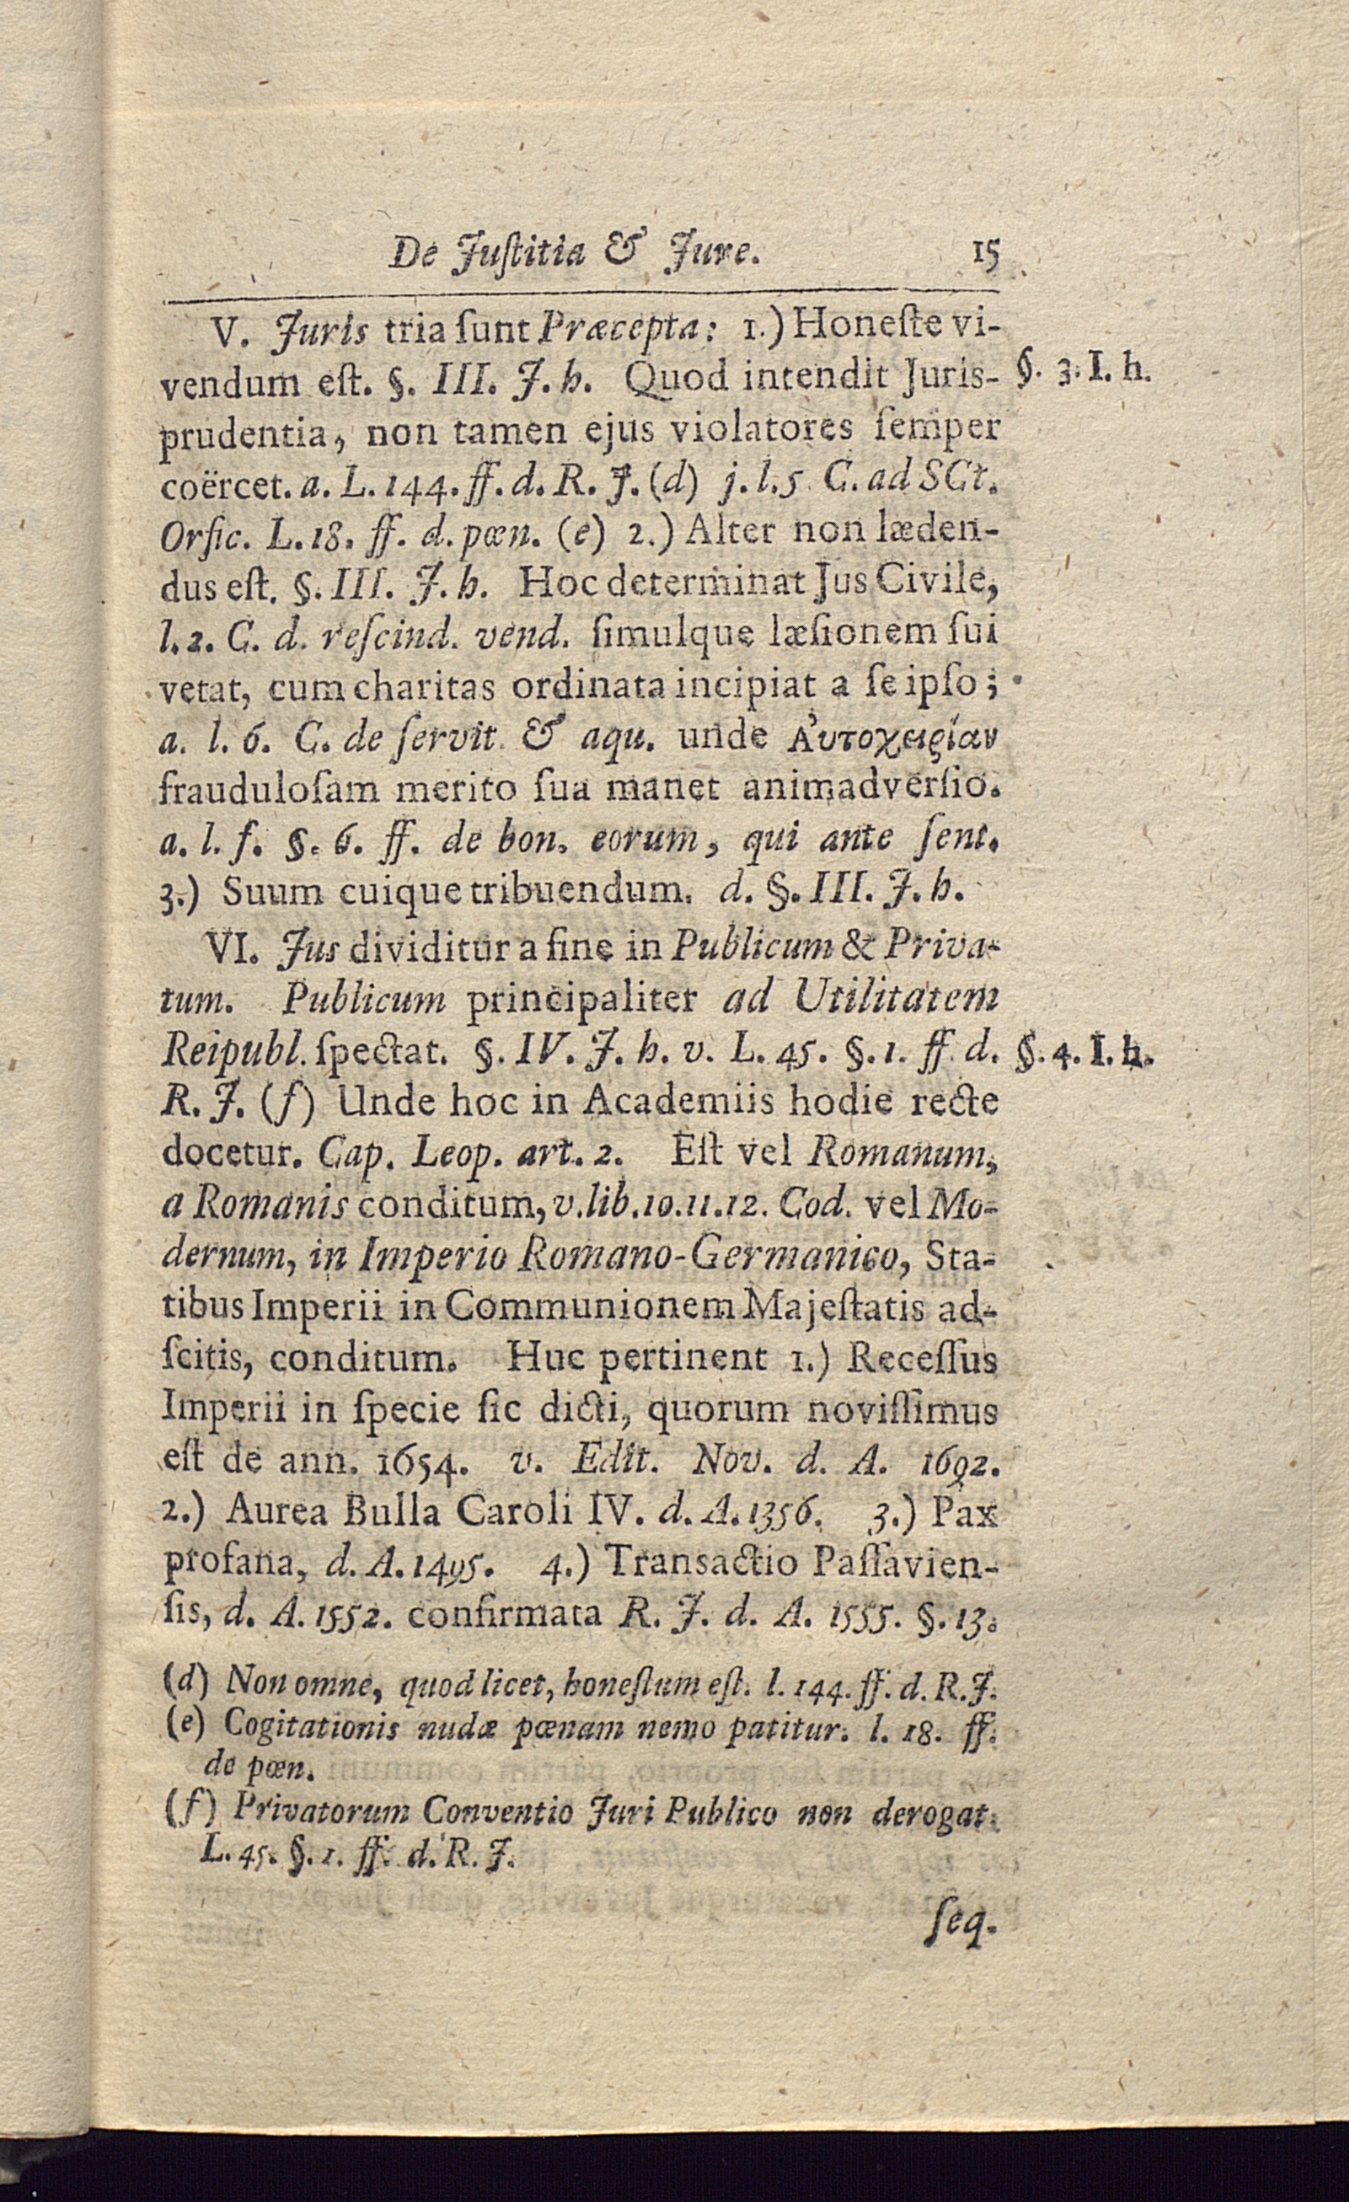 De Juſtitia & Jure. 15
V. Juris tria ſunt Præcepta: 1.) Honeſte vi-
vendum eſt. §. III. J. h. Quod intendit Juris- §. 3. I. h.
prudentia, non tamen ejus violatores ſemper
coërcet. a. L. 144. ff. d. R. J. (d) j. l. 5 C. ad SCt.
Orfic. L. 18. ff. d. pœn. (e) 2.) Alter non læden-
dus eſt. §. III. J. h. Hoc determinat Jus Civile,
l. 2. C. d. reſcind. vend. ſimulque læſionem ſui
vetat, cum charitas ordinata incipiat a ſe ipſo;
a. l. 6. C. de ſervit. & aqu. unde Ἀυτοχειρίαν
frauduloſam merito ſua manet animadverſio.
a. l. f. §. 6. ff. de bon. eorum, qui ante ſent.
3.) Suum cuique tribuendum. d. §. III. J. h.
VI. Jus dividitur a fine in Publicum & Priva-
tum. Publicum principaliter ad Utilitatem
Reipubl. ſpectat. §. IV. J. h. v. L. 45. §. 1. ff. d. §. 4. I. h.
R. J. (f) Unde hoc in Academiis hodie recte
docetur. Cap. Leop. art. 2. Eſt vel Romanum,
a Romanis conditum, v. lib. 10. 11. 12. Cod. vel Mo-
dernum, in Imperio Romano-Germanico, Sta-
tibus Imperii in Communionem Majeſtatis ad-
ſcitis, conditum. Huc pertinent 1.) Receſſus
Imperii in ſpecie ſic dicti, quorum noviſſimus
eſt de ann. 1654. v. Edit. Nov. d. A. 1692.
2.) Aurea Bulla Caroli IV. d. A. 1356. 3.) Pax
profana, d. A. 1495. 4.) Transactio Paſſavien-
ſis, d. A. 1552. confirmata R. J. d. A. 1555. §. 13.
(d) Non omne, quod licet, honeſtum eſt. l. 144. ff. d. R. J.
(e) Cogitationis nudæ pœnam nemo patitur. l. 18. ff.
de pœn.
(f) Privatorum Conventio Juri Publico non derogat.
L. 45. §. 1. ff. d. R. J.
ſeq.